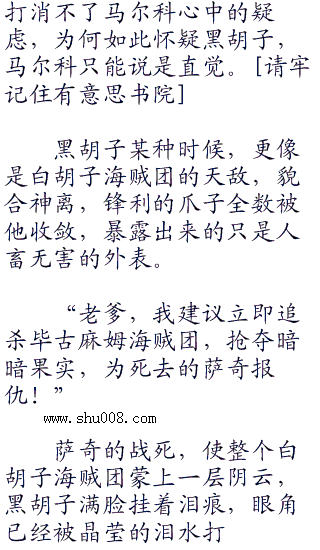 打消不了马尔科心中的疑
虑，为何如此怀疑黑胡子，
马尔科只能说是直觉。[请牢
记住有意思书院]
黑胡子某种时候，更像
是白胡子海贼团的天敌，貌
合神离，锋利的爪子全数被
他收敛，暴露出来的只是人
畜无害的外表。
“老爹，我建议立即追
杀毕古麻姆海贼团，抢夺暗
暗果实，为死去的萨奇报
仇！”
www.shu008.com
萨奇的战死，使整个白
胡子海贼团蒙上一层阴云，
黑胡子满脸挂着泪痕，眼角
已经被晶莹的泪水打